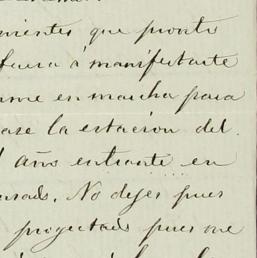 mientes que pronto
fuera á manifestarte
rme en marcha para
ase la estacion del
año entrante en
No dejes pues
proyectado pues me